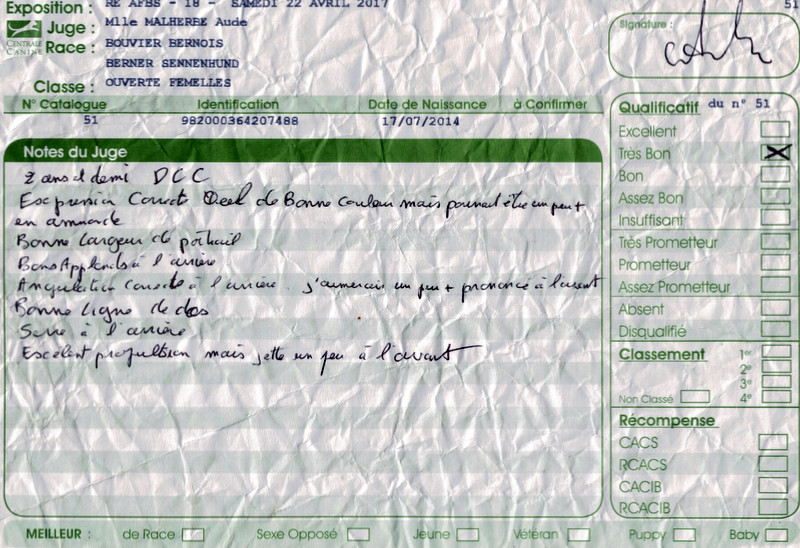 Exposition : RE AFBS - 18 - SAMEDI 22 AVRIL 2017 51
CENTRALE CANINE
Juge : Mlle MALHERBE Aude
Race : BOUVIER BERNOIS
BERNER SENNENHUND
Classe : OUVERTE FEMELLES
Signature :
N° Catalogue Identification Date de Naissance à Confirmer
51 982000364207488 17/07/2014
Notes du Juge
2 ans et demi DCC
Expression Correcte Oeil de Bonne Couleur mais pourrait être un peu +
en amande
Bonne largeur de poitrail
Bons Applombs à l'arrière
Angulation correcte à l'arrière. j'aimerais un peu + prononcé à l'avant
Bonne ligne de dos
Serre à l'arrière
Excélent propultsion mais jette un peu à l'avant
Qualificatif du n° 51
Excellent
Très Bon X
Bon
Assez Bon
Insuffisant
Très Prometteur
Prometteur
Assez Prometteur
Absent
Disqualifié
Classement 1er
2e
3e
Non Classé 4e
Récompense
CACS
RCACS
CACIB
RCACIB
MEILLEUR : de Race Sexe Opposé Jeune Vétéran Puppy Baby